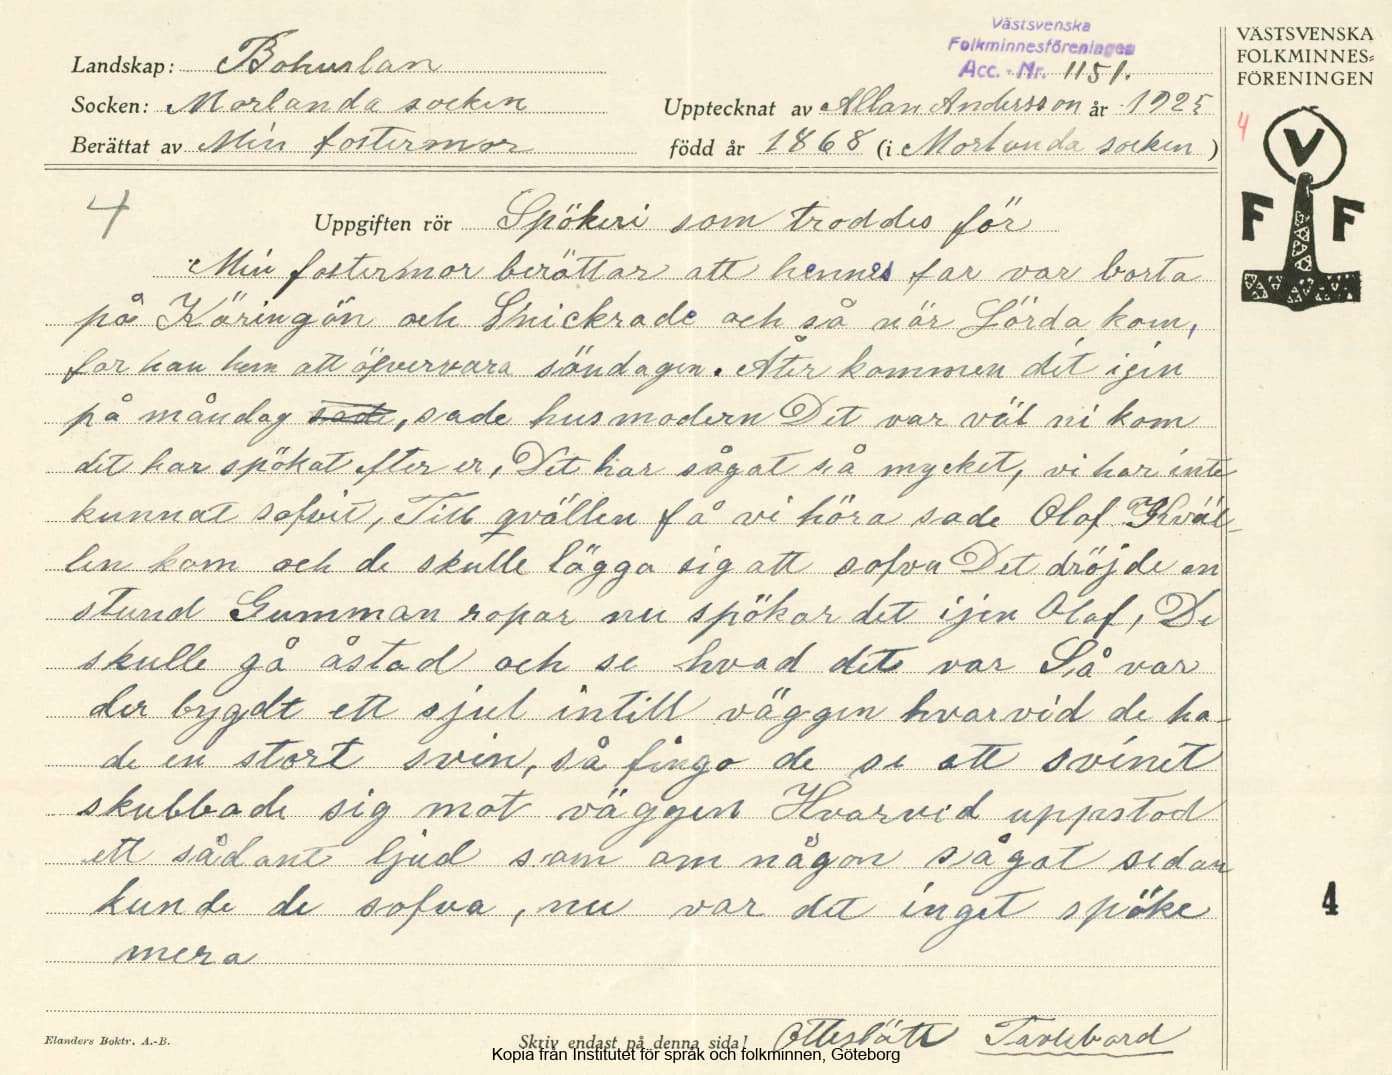 Västsvenska
Folkminnesföreningen
Acc. Nr. 1151.
VÄSTSVENSKA
FOLKMINNES=
FÖRENINGEN
4
V
F F
Landskap: Bohuslan
Socken: Morlanda socken
Upptecknat av Allan Andersson år 1925
Berättat av Min fostermor
född år 1868 (i Morlanda socken )
4
Uppgiften rör Spökeri som troddes för
Min fostermor berättar att hennes far var borta
på Käringön och Snickrade och så när Lörda kom,
for han hem att öfvervara söndagen. Åter kommen dit igen
på måndag sade, sade husmodern Det var väl ni kom
det har spökat efter er, Det har sågat så mycket, vi har inte
kunnat sofvit, Till qvällen få vi höra sade Olof Kväl-
len kom och de skulle lägga sig att sofva Det dröjde en
stund Gumman ropar nu spökar det ijen Olof, De
skulle gå åstad och se hvad det var Så var
der bygdt ett sjul intill väggen hvarvid de ha-
de en stort svin, så fingo de se att svinet
skubbade sig mot väggen Hvarvid uppstod
ett sådant ljud som om någon sågat sedan
kunde de sofva, nu var det inget spöke
mera
4
Elanders Boktr. A.-B.
Skriv endast på denna sida!
Kopia från Institutet för språk och folkminnen, Göteborg